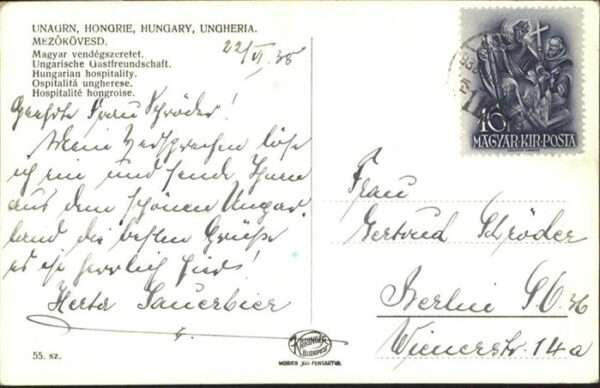 UNAGRN, HONGRIE, HUNGARY, UNGHERIA.
MEZŐKÖVESD.
Magyar vendégszeretet.
Ungarische Gastfreundschaft.
Hungarian hospitality.
Ospitalitá ungherese.
Hospitalité hongroise.
22/VI. 38
Geehrte Frau Schröder!
Mein Versprechen löse
ich ein und sende Ihnen
aus dem schönen Ungar,
land die besten Grüße
es ist herrlich hier!
Herta Sauerbier
55. sz.
KARINGER
BUDAPEST
16
MAGYAR·KIR·POSTA
Frau
Gertrud Schröder
Berlin SO. 36
Wienerstr. 14a